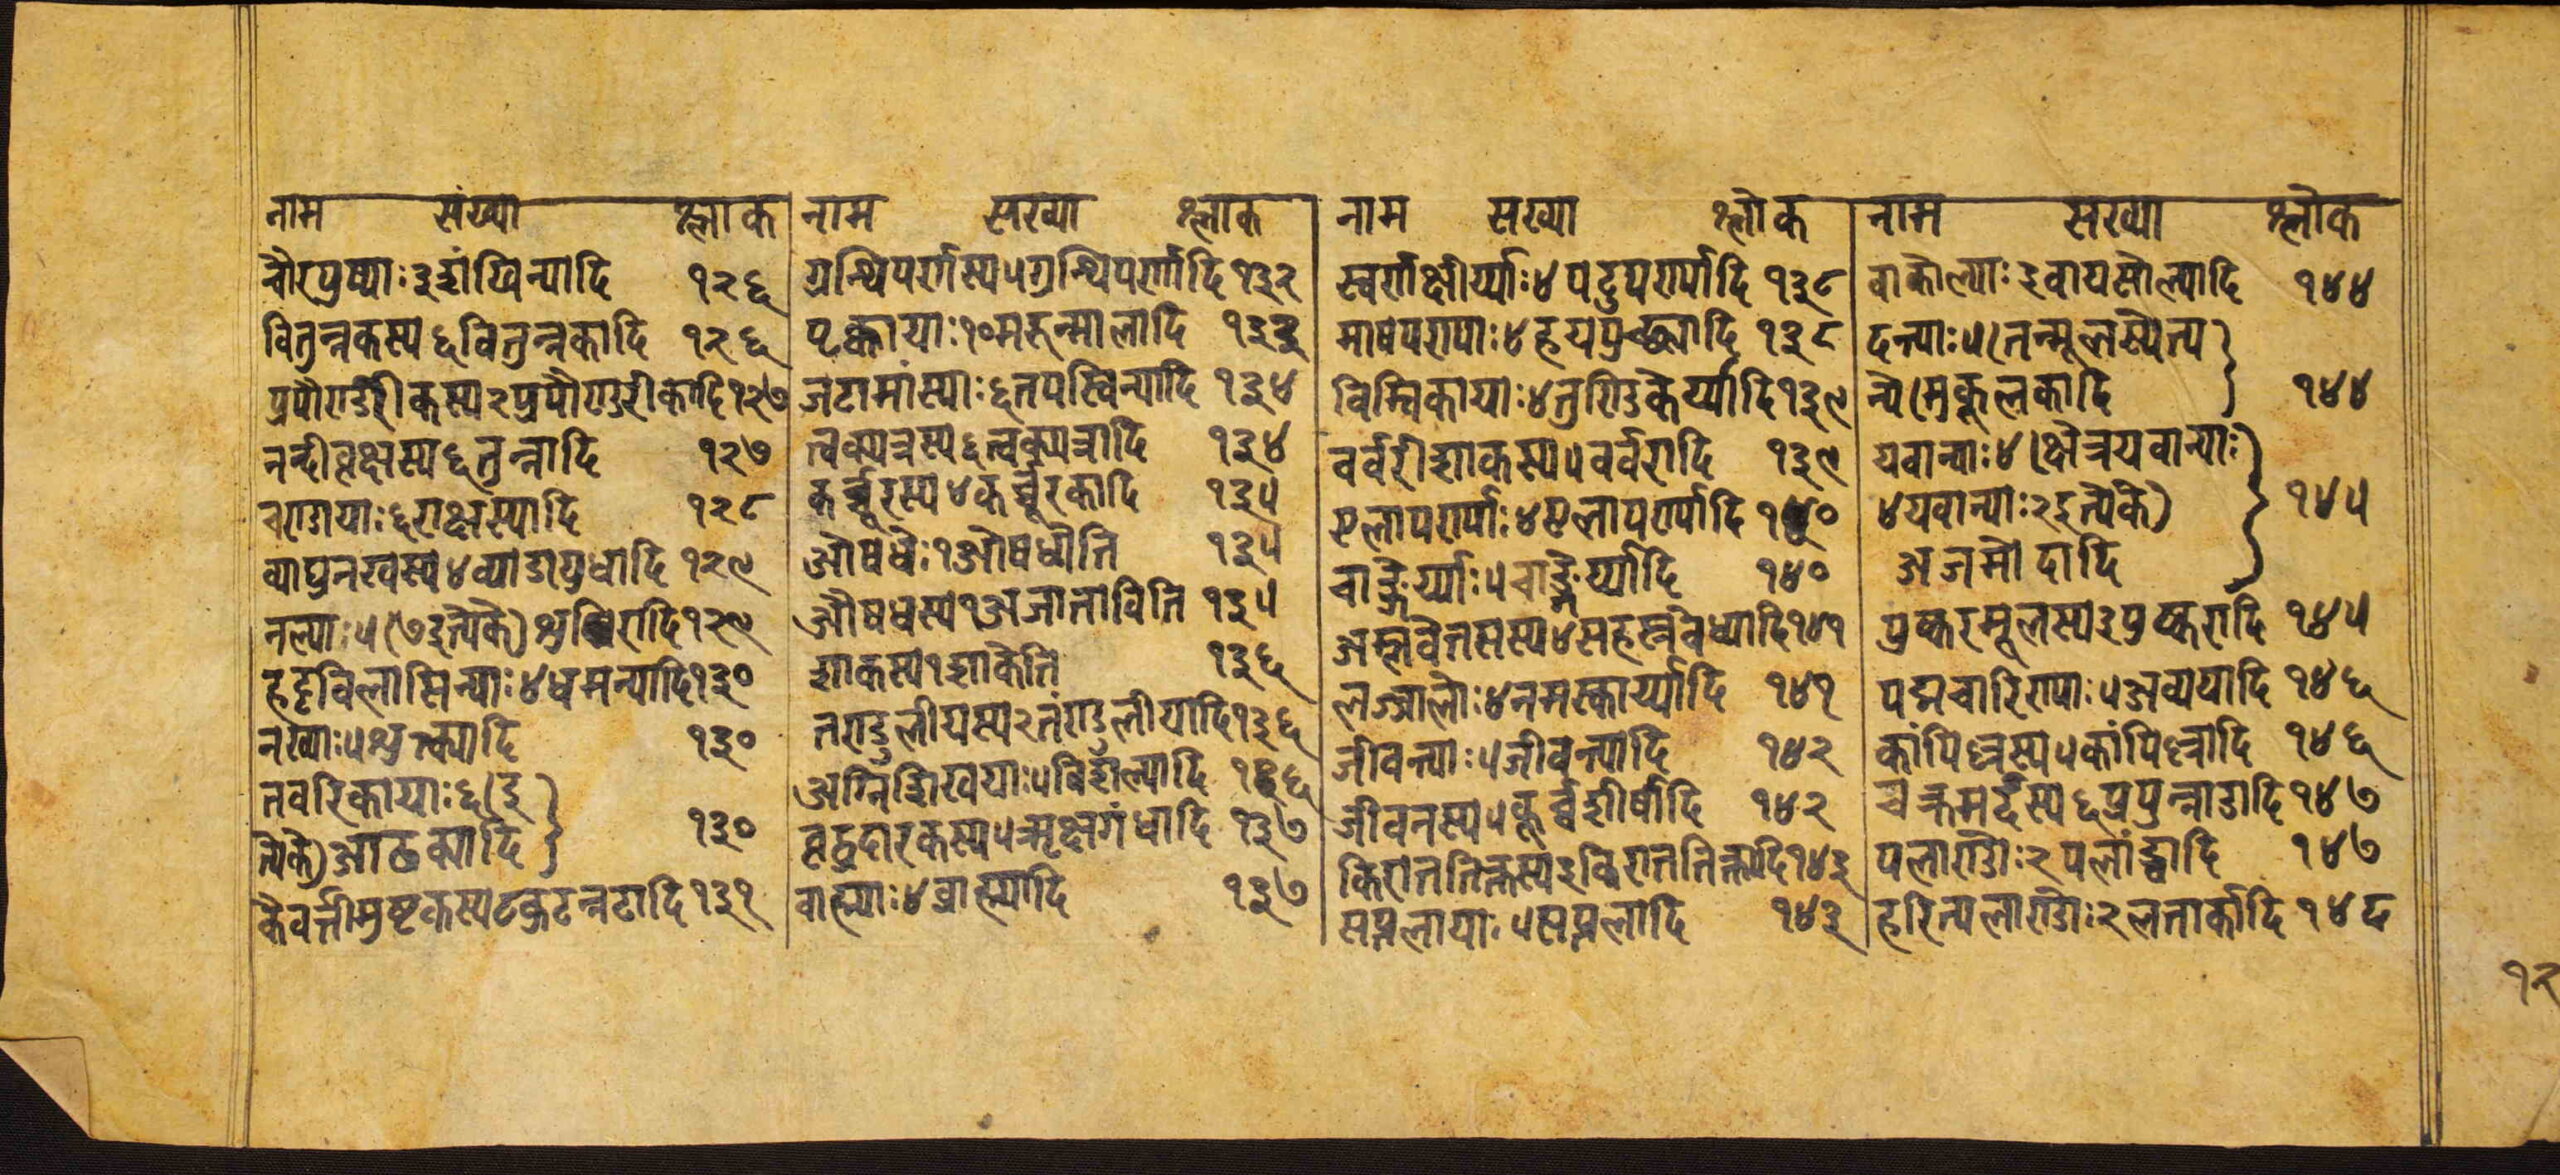 नाम संख्या श्लोक
चोरपुष्प्याः ३ शंखिन्यादि १२६
वितुन्नकस्य ६ वितुन्नकादि १२६
प्रपौण्डरीकस्य २ प्रपौण्डरीकादि १२७
नन्दीवृक्षस्य ६ तुन्नादि १२७
चण्डायाः ६ राक्षस्यादि १२८
व्याघ्रनखस्य ४ व्याडायुधादि १२९
नल्याः ५ (७ इत्येके) शुषिरादि १२९
हट्टविलासिन्याः ४ धमन्यादि १३०
नख्याः ५ शुक्त्यादि १३०
तवरिकायाः ६ (इ
त्येके) आढक्यादि १३०
कैवर्त्तीमुष्टकस्य ८ कुटन्नटादि १३१
नाम संख्या श्लोक
ग्रन्थिपर्णस्य ५ ग्रन्थिपर्णादि १३२
पृक्कायाः १० मरुन्मालादि १३३
जटामांस्याः ६ तपस्विन्यादि १३४
त्वक्पत्रस्य ६ त्वक्पत्रादि १३४
कर्च्चूरस्य ४ कर्च्चूरकादि १३५
ओषधेः १ ओषध्येति १३५
औषधस्य १ अजाताविति १३५
शाकस्य १ शाकेति १३६
तण्डुलीयस्य २ तंण्डुलीयादि १३६
अग्निशिखयाः ५ विशल्यादि १३६
वृद्धदारकस्य ५ ऋक्षगंधादि १३७
वाह्म्याः ४ ब्राह्म्यादि १३७
नाम सख्या श्लोक
स्वर्णक्षीर्य्याः ४ पटुपर्ण्यादि १३८
माषपर्ण्याः ४ हयपुच्छ्यादि १३८
विम्विकायाः ४ तुण्डिकेर्य्यादि १३९
वर्वरीशाकस्य ५ वर्वरादि १३९
एलापर्ण्याः ४ एलापर्ण्यादि १४०
चाङ्गेर्य्याः ५ चाङ्गेर्य्यादि १४०
अम्लवेतसस्य ४ सहस्रवेध्यादि १४१
लज्जालोः ४ नमस्कार्य्यादि १४१
जीवन्त्याः ५ जीवन्त्यादि १४२
जीवनस्य ५ कूर्च्चशीर्षादि १४२
किराततिक्तस्य ३ किराततिक्तादि १४३
सप्तलायाः ५ सप्तलादि १४३
नाम सख्या श्लोक
वाकोल्याः ३ वायसोल्यादि १४४
दन्त्याः ५ (तन्मूलस्येत्य
न्ये) मुकूलकादि १४४
यवान्याः ४ (क्षेत्रयवान्याः
४ यवान्याः २ इत्येके) १४५
अजमोदादि
पुष्करमूलस्य ३ पुष्करादि १४५
पद्मचारिण्याः ५ अव्यथादि १४६
कांपिल्लस्य ५ कांपिल्लादि १४६
चक्रमर्दस्य ६ प्रपुन्नाडादि १४७
पलाण्डोः २ पलांड्वादि १४७
हरित्पलाण्डोः २ लतार्कादि १४८
१२